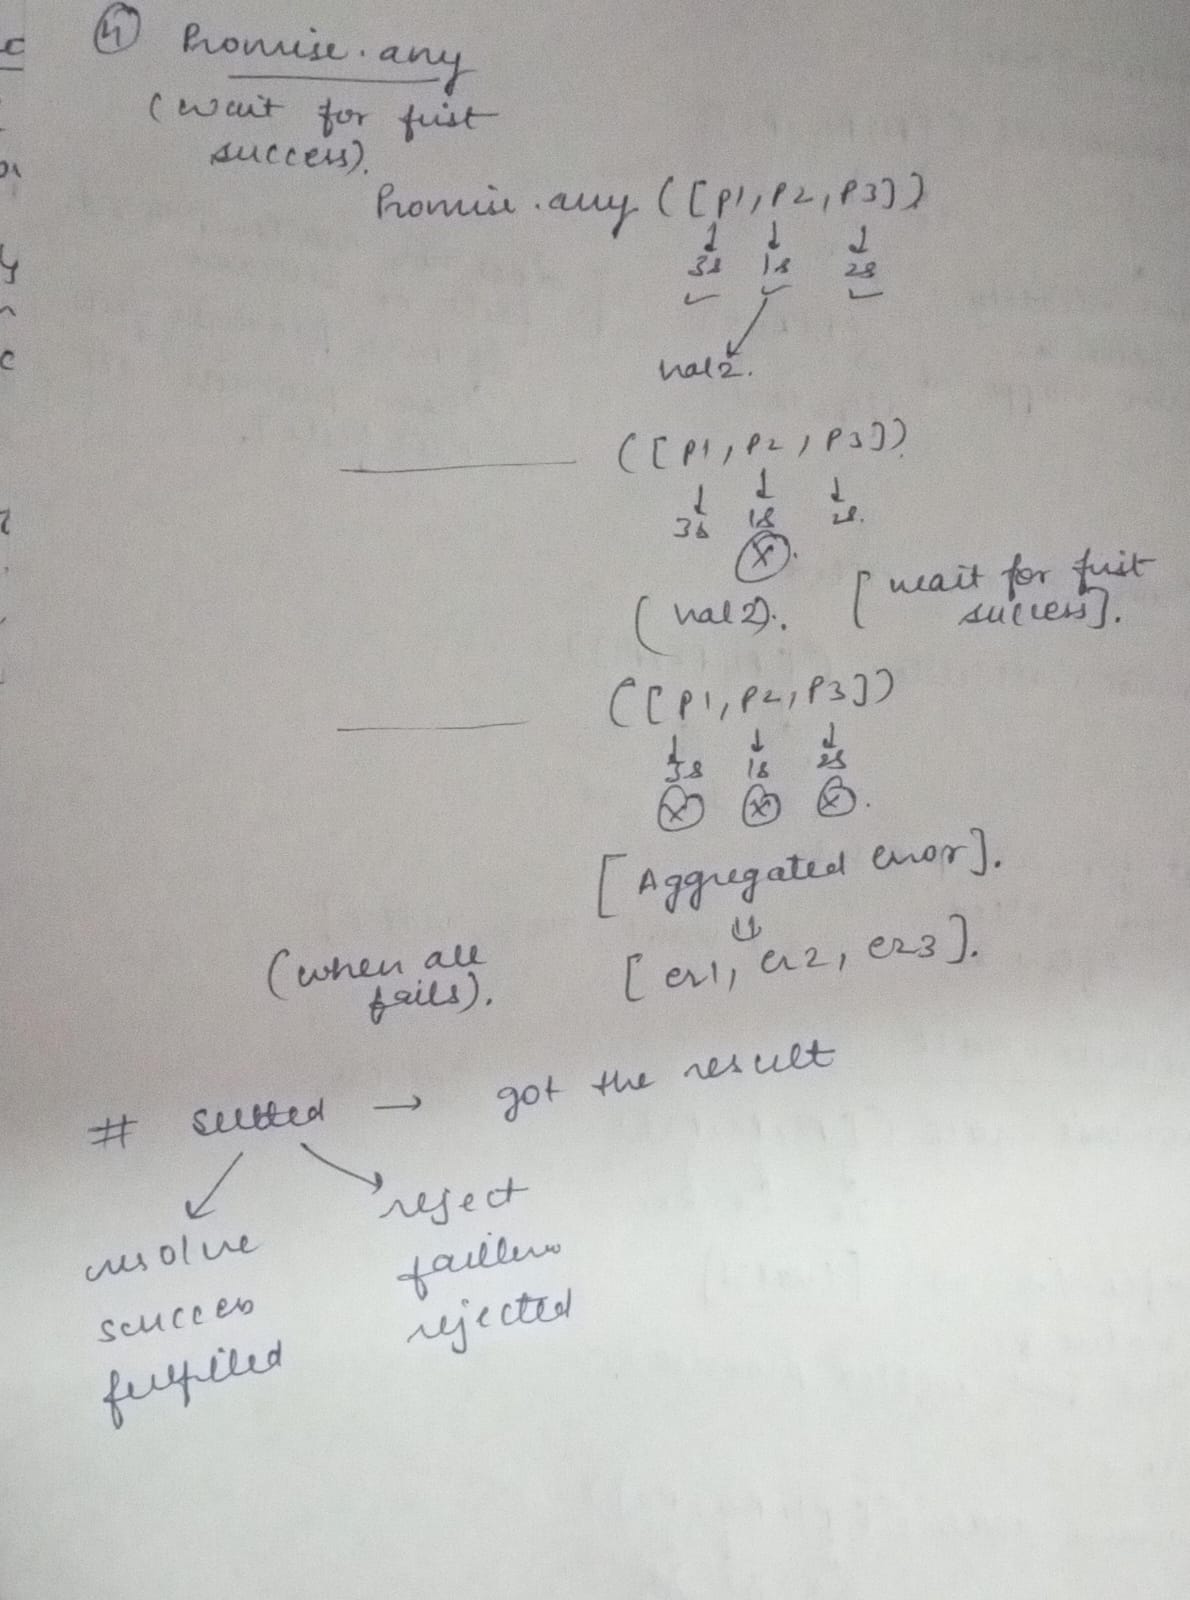 ④ Promise.any
(wait for first
success).
Promise.any ([p1, p2, p3])
↓ ↓ ↓
3s 1s 2s
✓ ✓ ✓
val2.
([p1, p2, p3])
↓ ↓ ↓
3s 1s 2s.
ⓧ.
(val2). [wait for first
success].
([p1, p2, p3])
↓ ↓ ↓
3s 1s 2s
ⓧ ⓧ ⓧ.
[Aggregated error].
⇓
(when all [er1, er2, er3].
fails).
# settled → got the result
resolve reject
success
fulfilled rejected